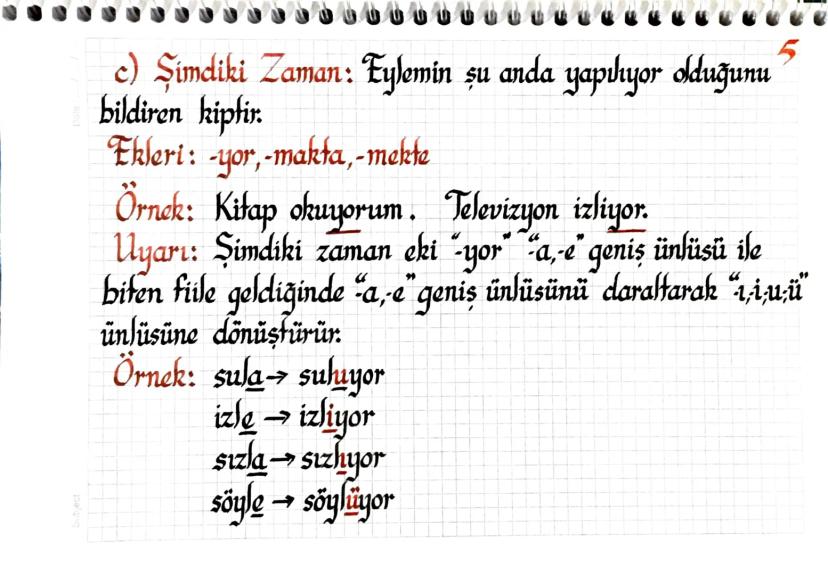 5
c) Şimdiki Zaman: Eylemin şu anda yapılıyor olduğunu
bildiren kiptir.
Ekleri: -yor, -makta, -mekte
Örnek: Kitap okuyorum. Televizyon izliyor.
Uyarı: Şimdiki zaman eki "-yor" "-a,-e" geniş ünlüsü ile
biten fiile geldiğinde "-a,-e" geniş ünlüsünü daraltarak "ı,-i,-u,-ü"
ünlüsüne dönüştürür.
Örnek: sula → suluyor
izle → izliyor
sızla → sızlıyor
söyle → söylüyor